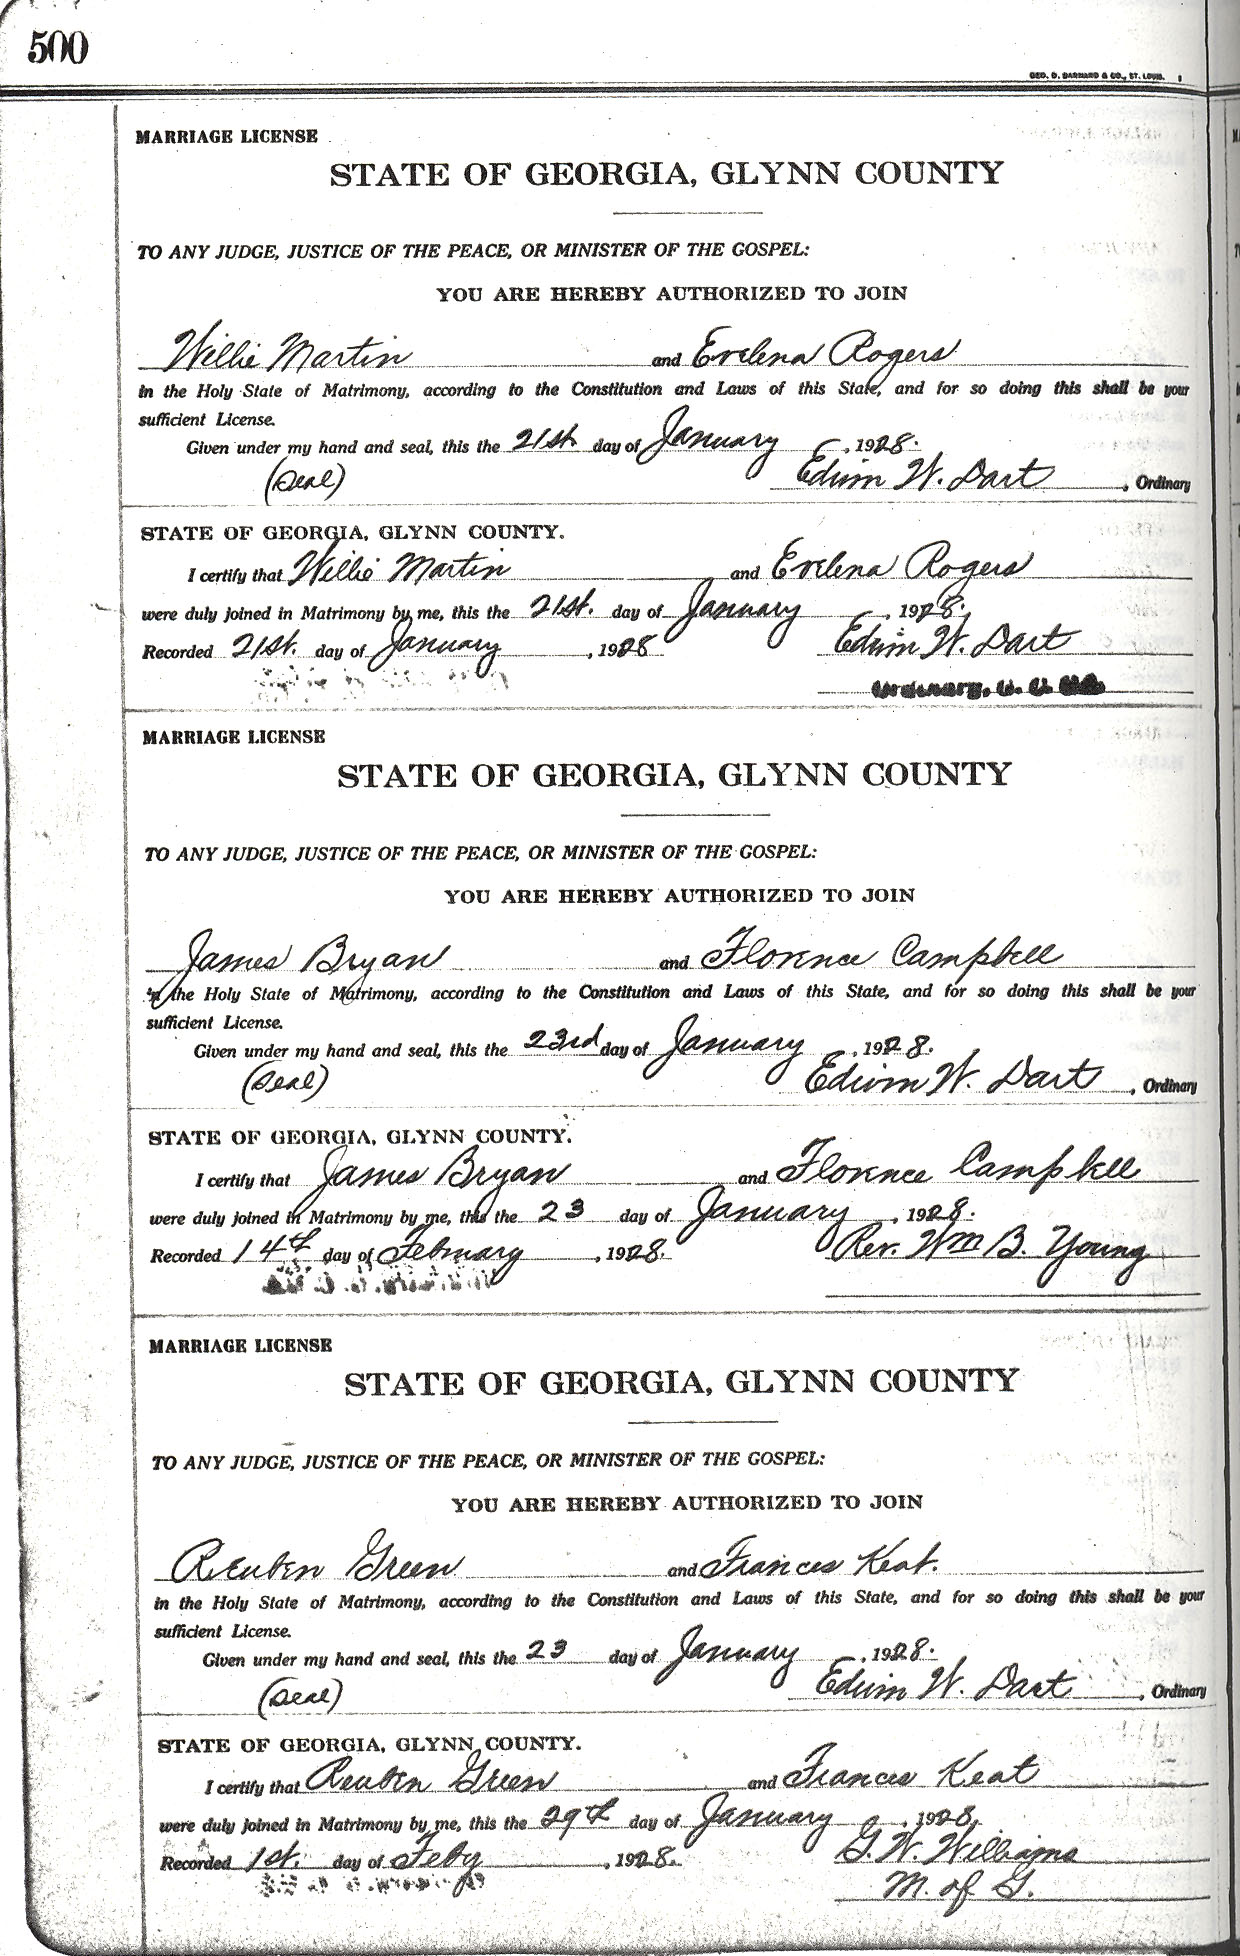 500
GEO. D. BARNARD & CO., ST. LOUIS.
MARRIAGE LICENSE
STATE OF GEORGIA, GLYNN COUNTY
TO ANY JUDGE, JUSTICE OF THE PEACE, OR MINISTER OF THE GOSPEL:
YOU ARE HEREBY AUTHORIZED TO JOIN
Willie Martin and Evelena Rogers
in the Holy State of Matrimony, according to the Constitution and Laws of this State, and for so doing this shall be your
sufficient License.
Given under my hand and seal, this the 21st. day of January, 1928.
(Seal) Edwin W. Dart, Ordinary
STATE OF GEORGIA, GLYNN COUNTY.
I certify that Willie Martin and Evelena Rogers
were duly joined in Matrimony by me, this the 21st. day of January, 1928.
Recorded 21st. day of January, 1928 Edwin W. Dart
Ordinary, G. C. Ga.
MARRIAGE LICENSE
STATE OF GEORGIA, GLYNN COUNTY
TO ANY JUDGE, JUSTICE OF THE PEACE, OR MINISTER OF THE GOSPEL:
YOU ARE HEREBY AUTHORIZED TO JOIN
James Bryan and Florence Campbell
in the Holy State of Matrimony, according to the Constitution and Laws of this State, and for so doing this shall be your
sufficient License.
Given under my hand and seal, this the 23rd day of January, 1928.
(Seal) Edwin W. Dart, Ordinary
STATE OF GEORGIA, GLYNN COUNTY.
I certify that James Bryan and Florence Campbell
were duly joined in Matrimony by me, this the 23 day of January, 1928.
Recorded 14th day of February, 1928. Rev. Wm B. Young
MARRIAGE LICENSE
STATE OF GEORGIA, GLYNN COUNTY
TO ANY JUDGE, JUSTICE OF THE PEACE, OR MINISTER OF THE GOSPEL:
YOU ARE HEREBY AUTHORIZED TO JOIN
Reuben Green and Frances Keat.
in the Holy State of Matrimony, according to the Constitution and Laws of this State, and for so doing this shall be your
sufficient License.
Given under my hand and seal, this the 23 day of January, 1928.
(Seal) Edwin W. Dart, Ordinary
STATE OF GEORGIA, GLYNN COUNTY.
I certify that Reuben Green and Frances Keat
were duly joined in Matrimony by me, this the 29th day of January, 1928.
Recorded 1st. day of Feby, 1928. G. W. Williams
M. of G.